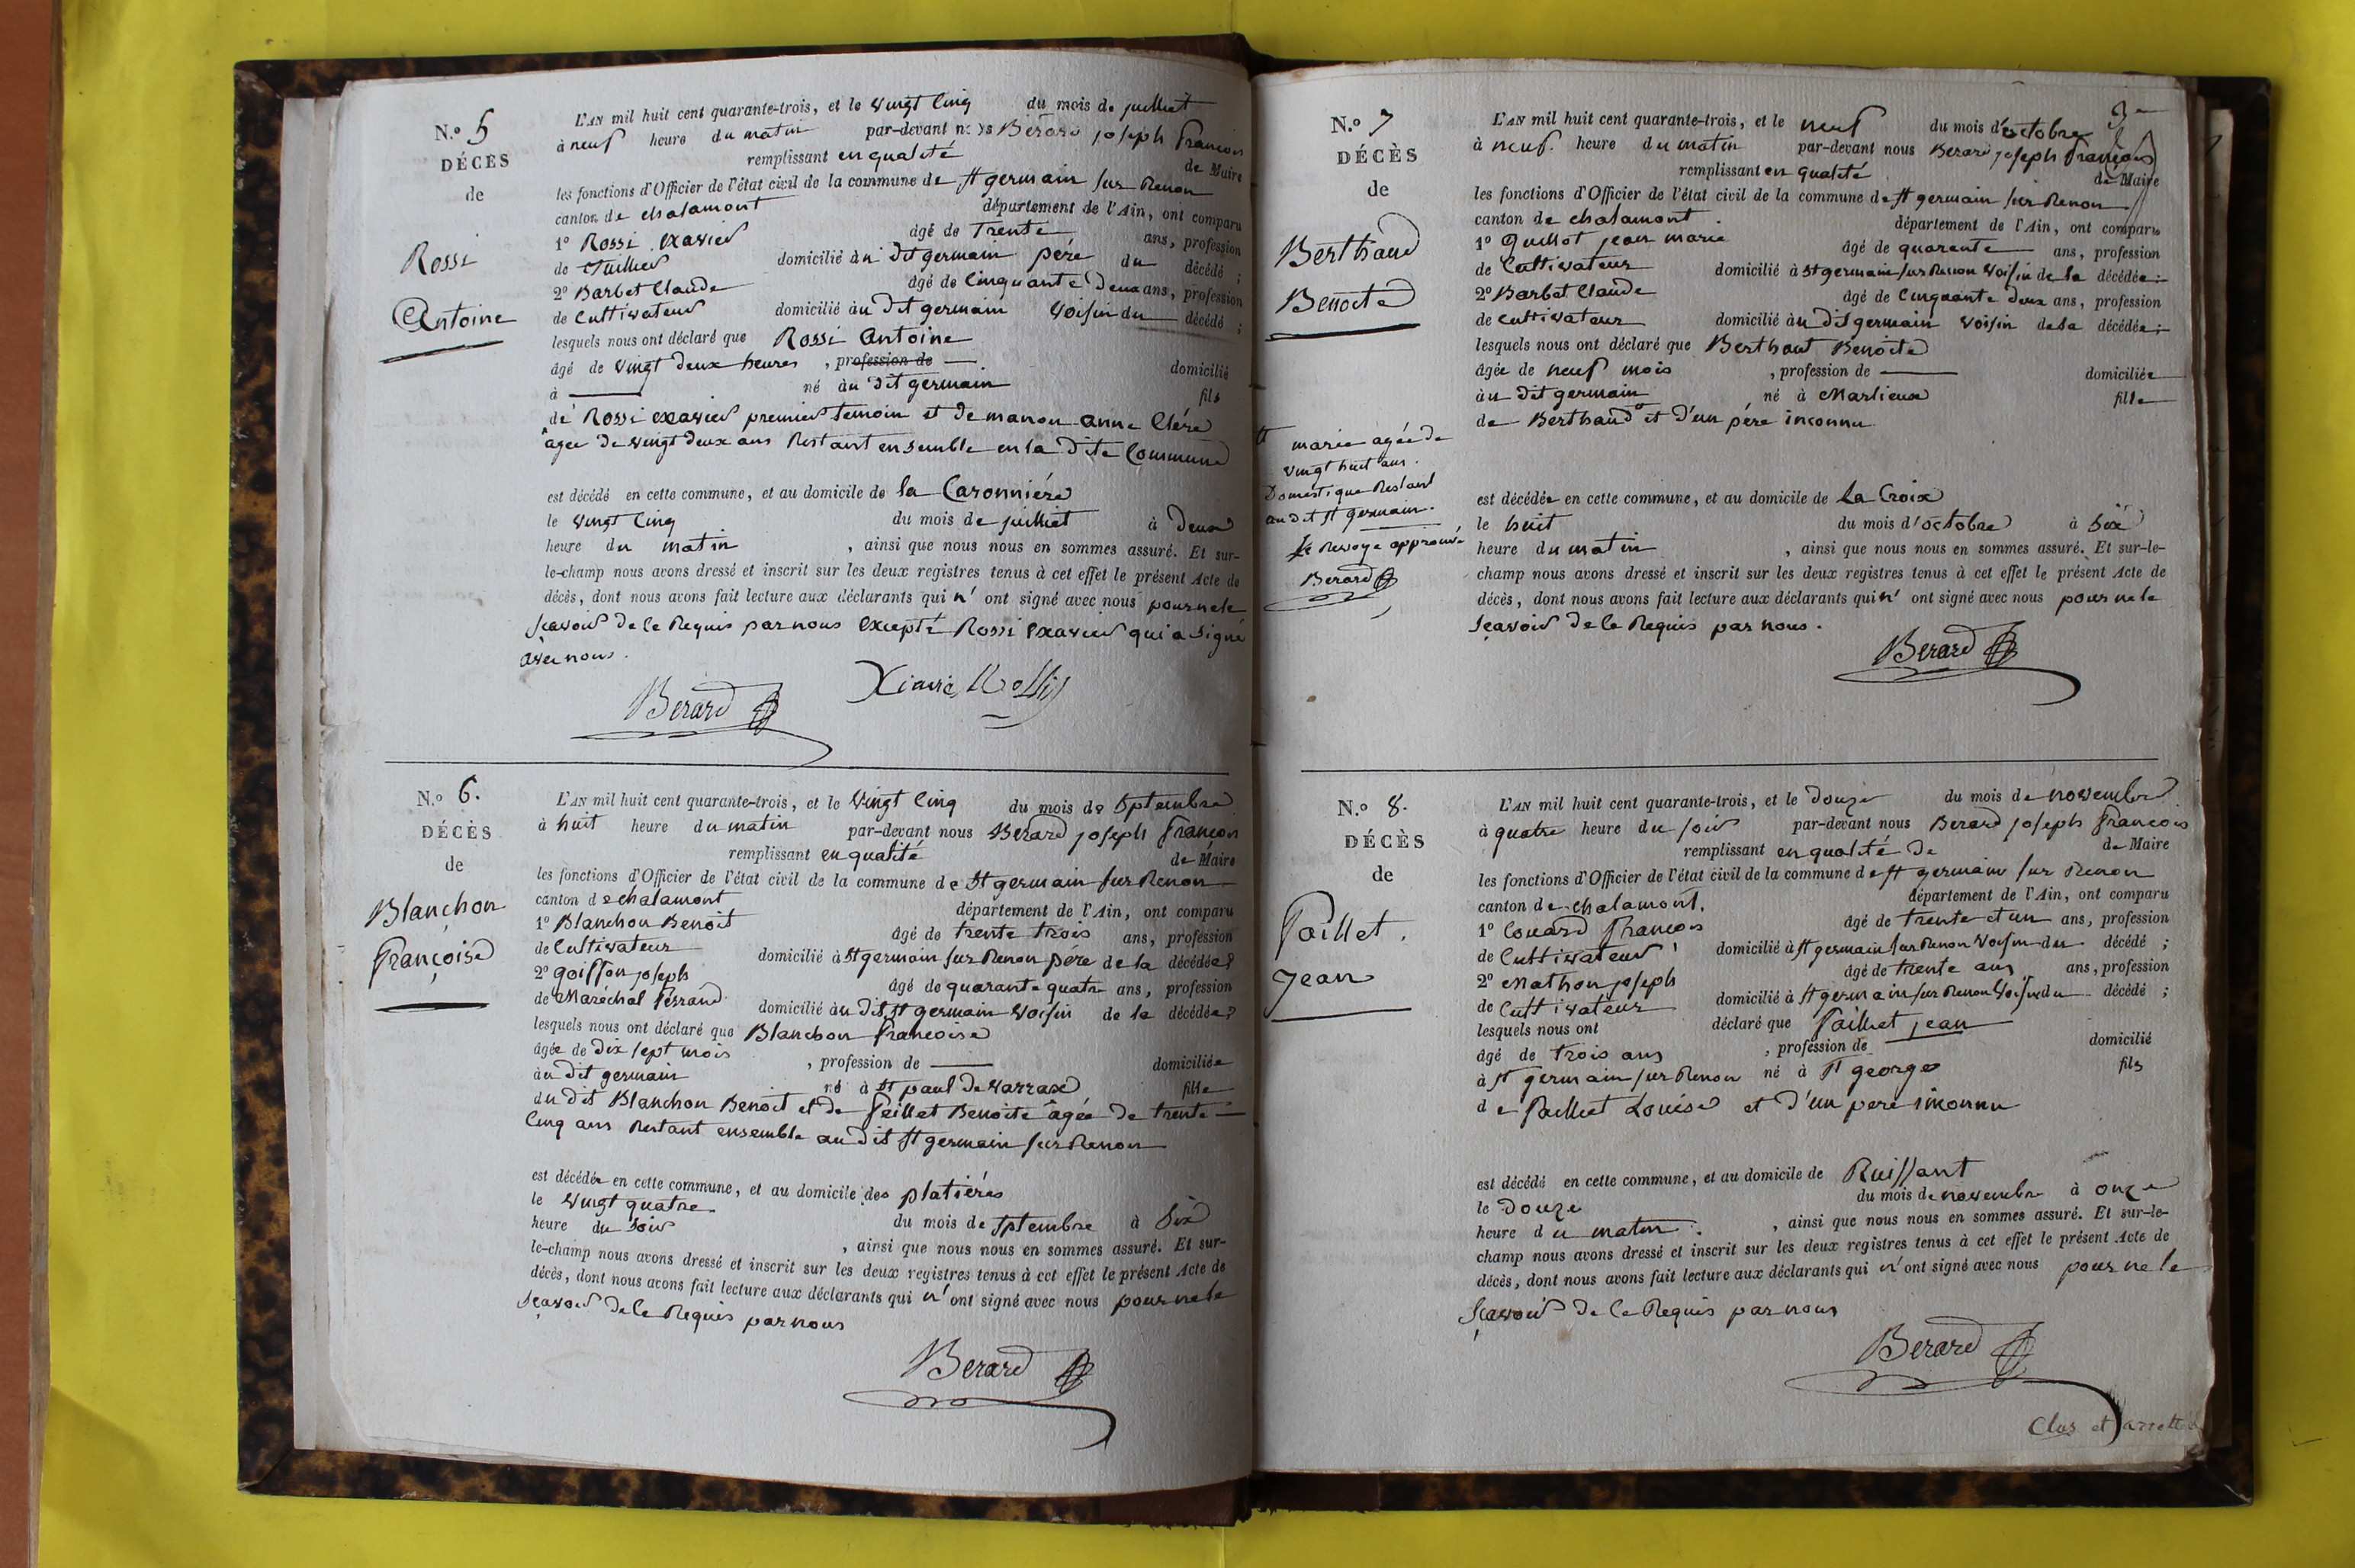 N.o 5
DÉCÈS
de
Rossi
Antoine
L'AN mil huit cent quarante-trois, et le vingt cinq du mois de juilliet
à neuf heure du matin par-devant nous Bérard joseph françois
remplissant en qualité de Maire
les fonctions d'Officier de l'état civil de la commune de st germain sur Renon
canton de chalamont département de l'Ain, ont comparu
1o Rossi Exavier âgé de Trente ans, profession
de Tuillier domicilié au dit germain père du décédé ;
2o Barbet Claude âgé de Cinquante deux ans, profession
de Cultivateur domicilié au dit germain voisin du décédé ;
lesquels nous ont déclaré que Rossi Antoine
âgé de vingt deux heures , profession de — domicilié
à — né au dit germain fils
de Rossi Exavier premier temoin et de manon anne Clére
agée de vingt deux ans Restant ensemble en la dite Commune
est décédé en cette commune, et au domicile de la Caronniére
le vingt cinq du mois de juilliet à deux
heure du matin , ainsi que nous nous en sommes assuré. Et sur-
le-champ nous avons dressé et inscrit sur les deux registres tenus à cet effet le présent Acte de
décès, dont nous avons fait lecture aux déclarants qui n' ont signé avec nous pour ne le
sçavoir de ce Requis par nous Excepté Rossi Exavier qui a signé
avec nous.
Berard
N.o 6.
DÉCÈS
de
Blanchon
françoise
L'AN mil huit cent quarante-trois, et le vingt cinq du mois de sptembre
à huit heure du matin par-devant nous Berard joseph françois
remplissant en qualité de Maire
les fonctions d'Officier de l'état civil de la commune de St germain sur Renon
canton de chalamont département de l'Ain, ont comparu
1o Blanchon Benoit âgé de trente trois ans, profession
de Cultivateur domicilié à St germain sur Renon père de la décédée ;
2o goiffon joseph âgé de quarante quatre ans, profession
de Maréchal ferrand domicilié au dit st germain voisin de la décédée ;
lesquels nous ont déclaré que Blanchon francoise
âgée de dix sept mois , profession de — domiciliée
au dit germain né à St paul de varrax fille
du dit Blanchon Benoit et de Peillet Benoite âgée de trente
cinq ans Restant ensemble au dit st germain sur Renon
est décédée en cette commune, et au domicile des platiéres
le vingt quatre du mois de sptembre à six
heure du soir , ainsi que nous nous en sommes assuré. Et sur-
le-champ nous avons dressé et inscrit sur les deux registres tenus à cet effet le présent Acte de
décès, dont nous avons fait lecture aux déclarants qui n' ont signé avec nous pour ne le
sçavoir de ce Requis par nous
Berard
N.o 7
DÉCÈS
de
Berthaud
Benoite
L'AN mil huit cent quarante-trois, et le neuf du mois d'octobre
à neuf. heure du matin par-devant nous Berard joseph françois
remplissant en qualité de Maire
les fonctions d'Officier de l'état civil de la commune de st germain sur Renon
canton de chalamont. département de l'Ain, ont comparu
1o Guillot jean marie âgé de quarente ans, profession
de Cultivateur domicilié à St germain sur Renon voisin de la décédée ;
2o Barbet Claude âgé de Cinquante deux ans, profession
de cultivateur domicilié au dit germain voisin de la décédée ;
lesquels nous ont déclaré que Berthaut Benoite
âgée de neuf mois , profession de — domiciliée
au dit germain né à Marlieux fille
de Berthaud et d'un père inconnu
marie agée de
vingt huit ans.
Domestique Restant
au dit st germain.
le Renvoye approuvé
Berard
est décédée en cette commune, et au domicile de la Croix
le huit du mois d'octobre à six
heure du matin , ainsi que nous nous en sommes assuré. Et sur-le-
champ nous avons dressé et inscrit sur les deux registres tenus à cet effet le présent Acte de
décès, dont nous avons fait lecture aux déclarants qui n' ont signé avec nous pour ne le
sçavoir de ce Requis par nous.
Berard
N.o 8.
DÉCÈS
de
Paillet.
Jean
L'AN mil huit cent quarante-trois, et le douze du mois de novembre
à quatre heure du soir par-devant nous Berard joseph francois
remplissant en qualité de de Maire
les fonctions d'Officier de l'état civil de la commune de st germain sur Renon
canton de chalamont. département de l'Ain, ont comparu
1o Couard francois âgé de trente et un ans, profession
de Cultivateur domicilié à st germain sur Renon voisin du décédé ;
2o Mathon joseph âgé de trente ans ans, profession
de Cultivateur domicilié à st germain sur Renon voisin du décédé ;
lesquels nous ont déclaré que Paillet jean
âgé de trois ans , profession de — domicilié
à st germain sur Renon né à st george fils
de Paillet Louise et d'un pere inconnu
est décédé en cette commune, et au domicile de Ruissant
le douze du mois de novembre à onze
heure du matin. , ainsi que nous nous en sommes assuré. Et sur-le-
champ nous avons dressé et inscrit sur les deux registres tenus à cet effet le présent Acte de
décès, dont nous avons fait lecture aux déclarants qui n' ont signé avec nous pour ne le
sçavoir de ce Requis par nous
Berard
Clos et arretté